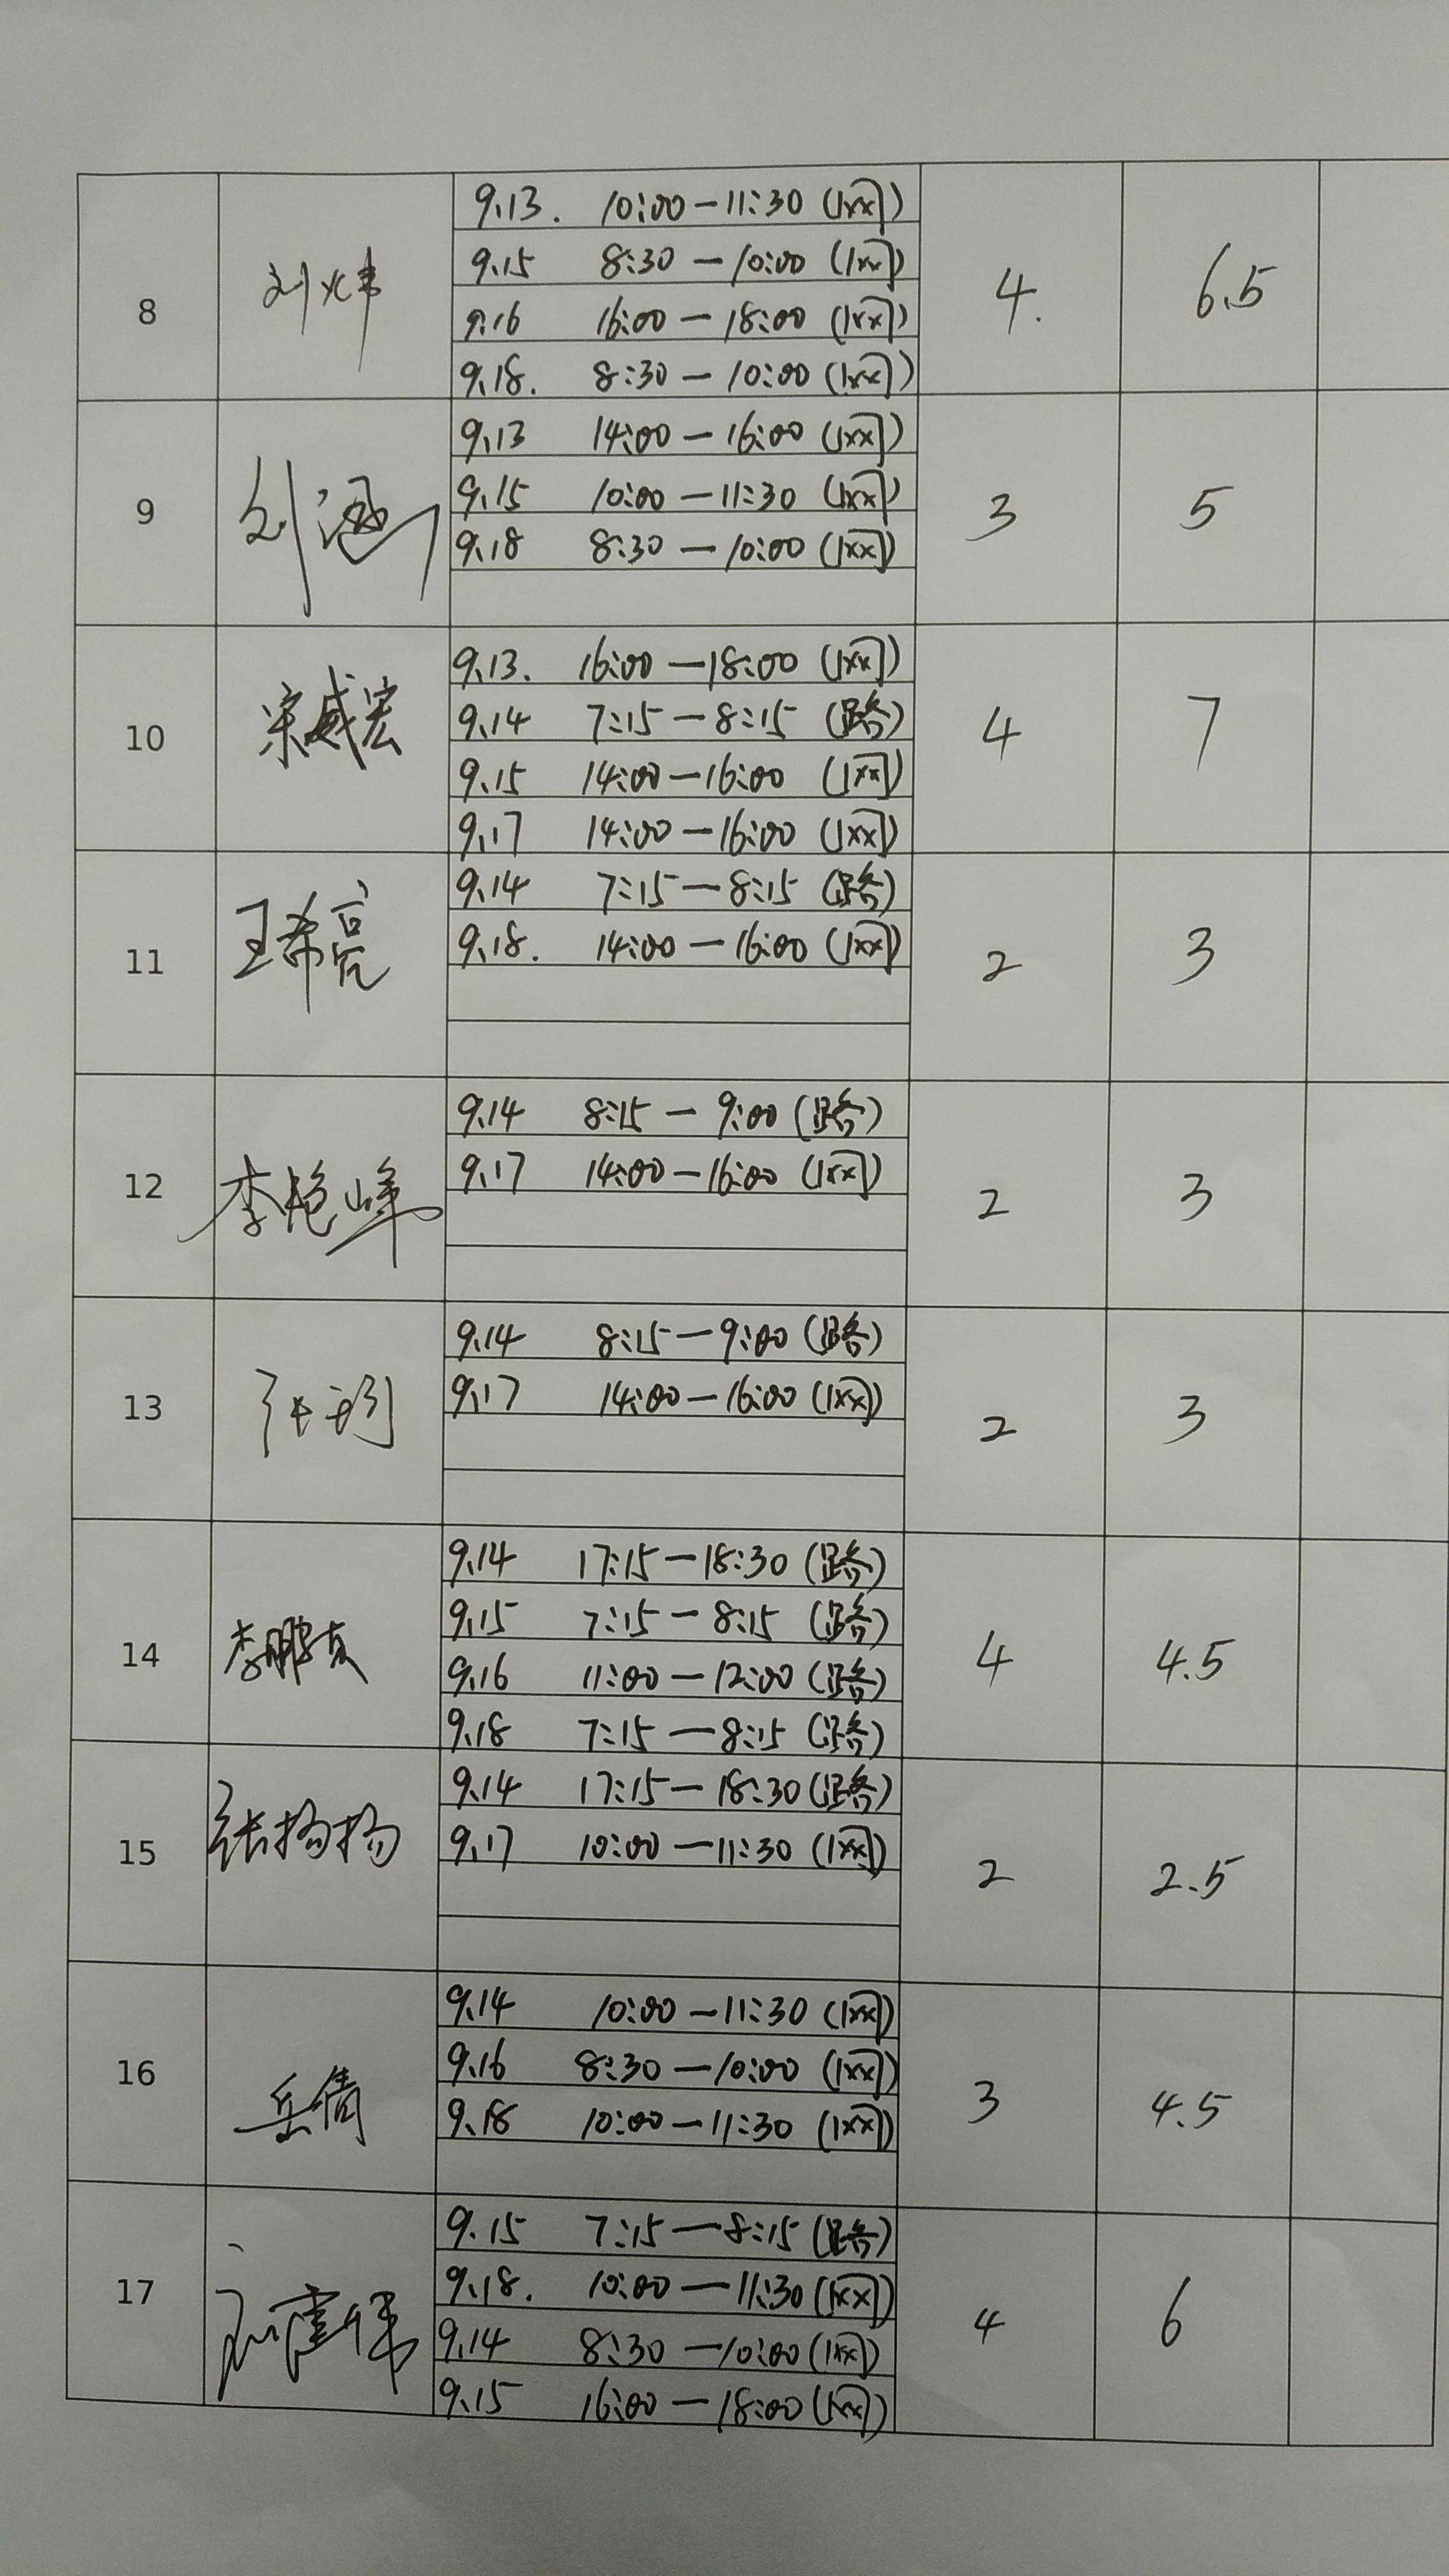 8 刘炜 4. 6.5
9.13. 10:00—11:30
9.15 8:30—10:00
9.16 16:00—18:00
9.18. 8:30—10:00
9 刘涵 3 5
9.13 14:00—16:00
9.15 10:00—11:30
9.18 8:30—10:00
10 宋威宏 4 7
9.13. 16:00—18:00
9.14 7:15—8:15 (路)
9.15 14:00—16:00
9.17 14:00—16:00
11 王希亮 2 3
9.14 7:15—8:15 (路)
9.18. 14:00—16:00
12 李艳峰 2 3
9.14 8:15—9:00 (路)
9.17 14:00—16:00
13 2 3
9.14 8:15—9:00 (路)
9.17 14:00—16:00
14 4 4.5
9.14 17:15—18:30 (路)
9.15 7:15—8:15 (路)
9.16 11:00—12:00 (路)
9.18 7:15—8:15 (路)
15 张扬扬 2 2.5
9.14 17:15—18:30 (路)
9.17 10:00—11:30
16 岳倩 3 4.5
9.14 10:00—11:30
9.16 8:30—10:00
9.18 10:00—11:30
17 4 6
9.15 7:15—8:15 (路)
9.18. 10:00—11:30
9.14 8:30—10:00
9.15 16:00—18:00